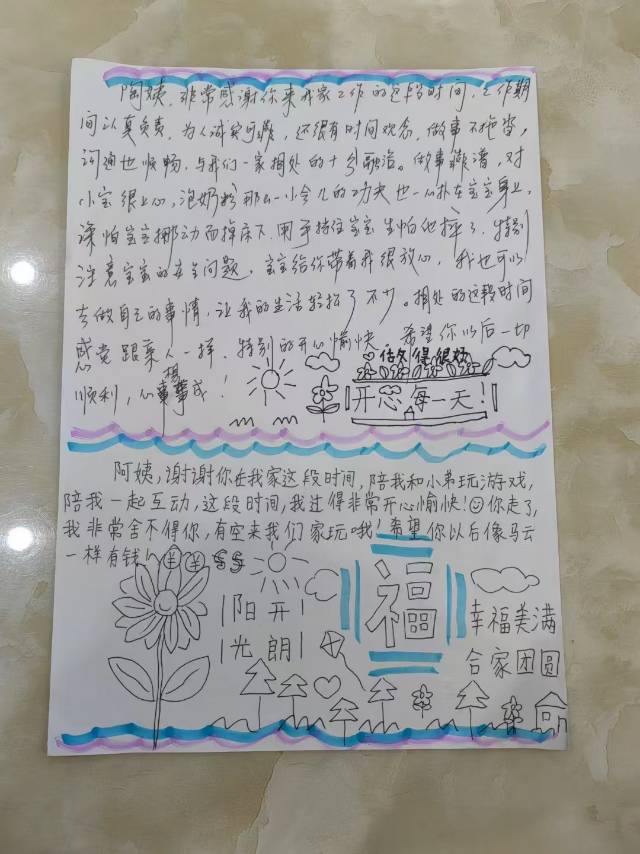 陶姨，非常感谢你来我家工作的这段时间，工作期
间认真负责，为人诚实可靠，还很有时间观念，做事不拖沓，
沟通也顺畅，与我们一家相处的十分融洽。做事靠谱，对
小宝很上心，泡奶粉那么一小会儿的功夫也一心扑在宝宝身上，
深怕宝宝挪动而掉床下，用手挡住宝宝生怕他摔了，特别
注意宝宝的安全问题，宝宝给你带着我很放心，我也可以
去做自己的事情，让我的生活轻松了不少。相处的这段时间
感觉跟亲人一样，特别的开心愉快 希望你以后一切
顺利，心想事成！
开心每一天！
阿姨，谢谢你在我家这段时间，陪我和小弟玩游戏，
陪我一起互动，这段时间，我过得非常开心愉快！你走了，
我非常舍不得你，有空来我们家玩哦！希望你以后像马云
一样有钱
阳光开朗
福
幸福美满
合家团圆